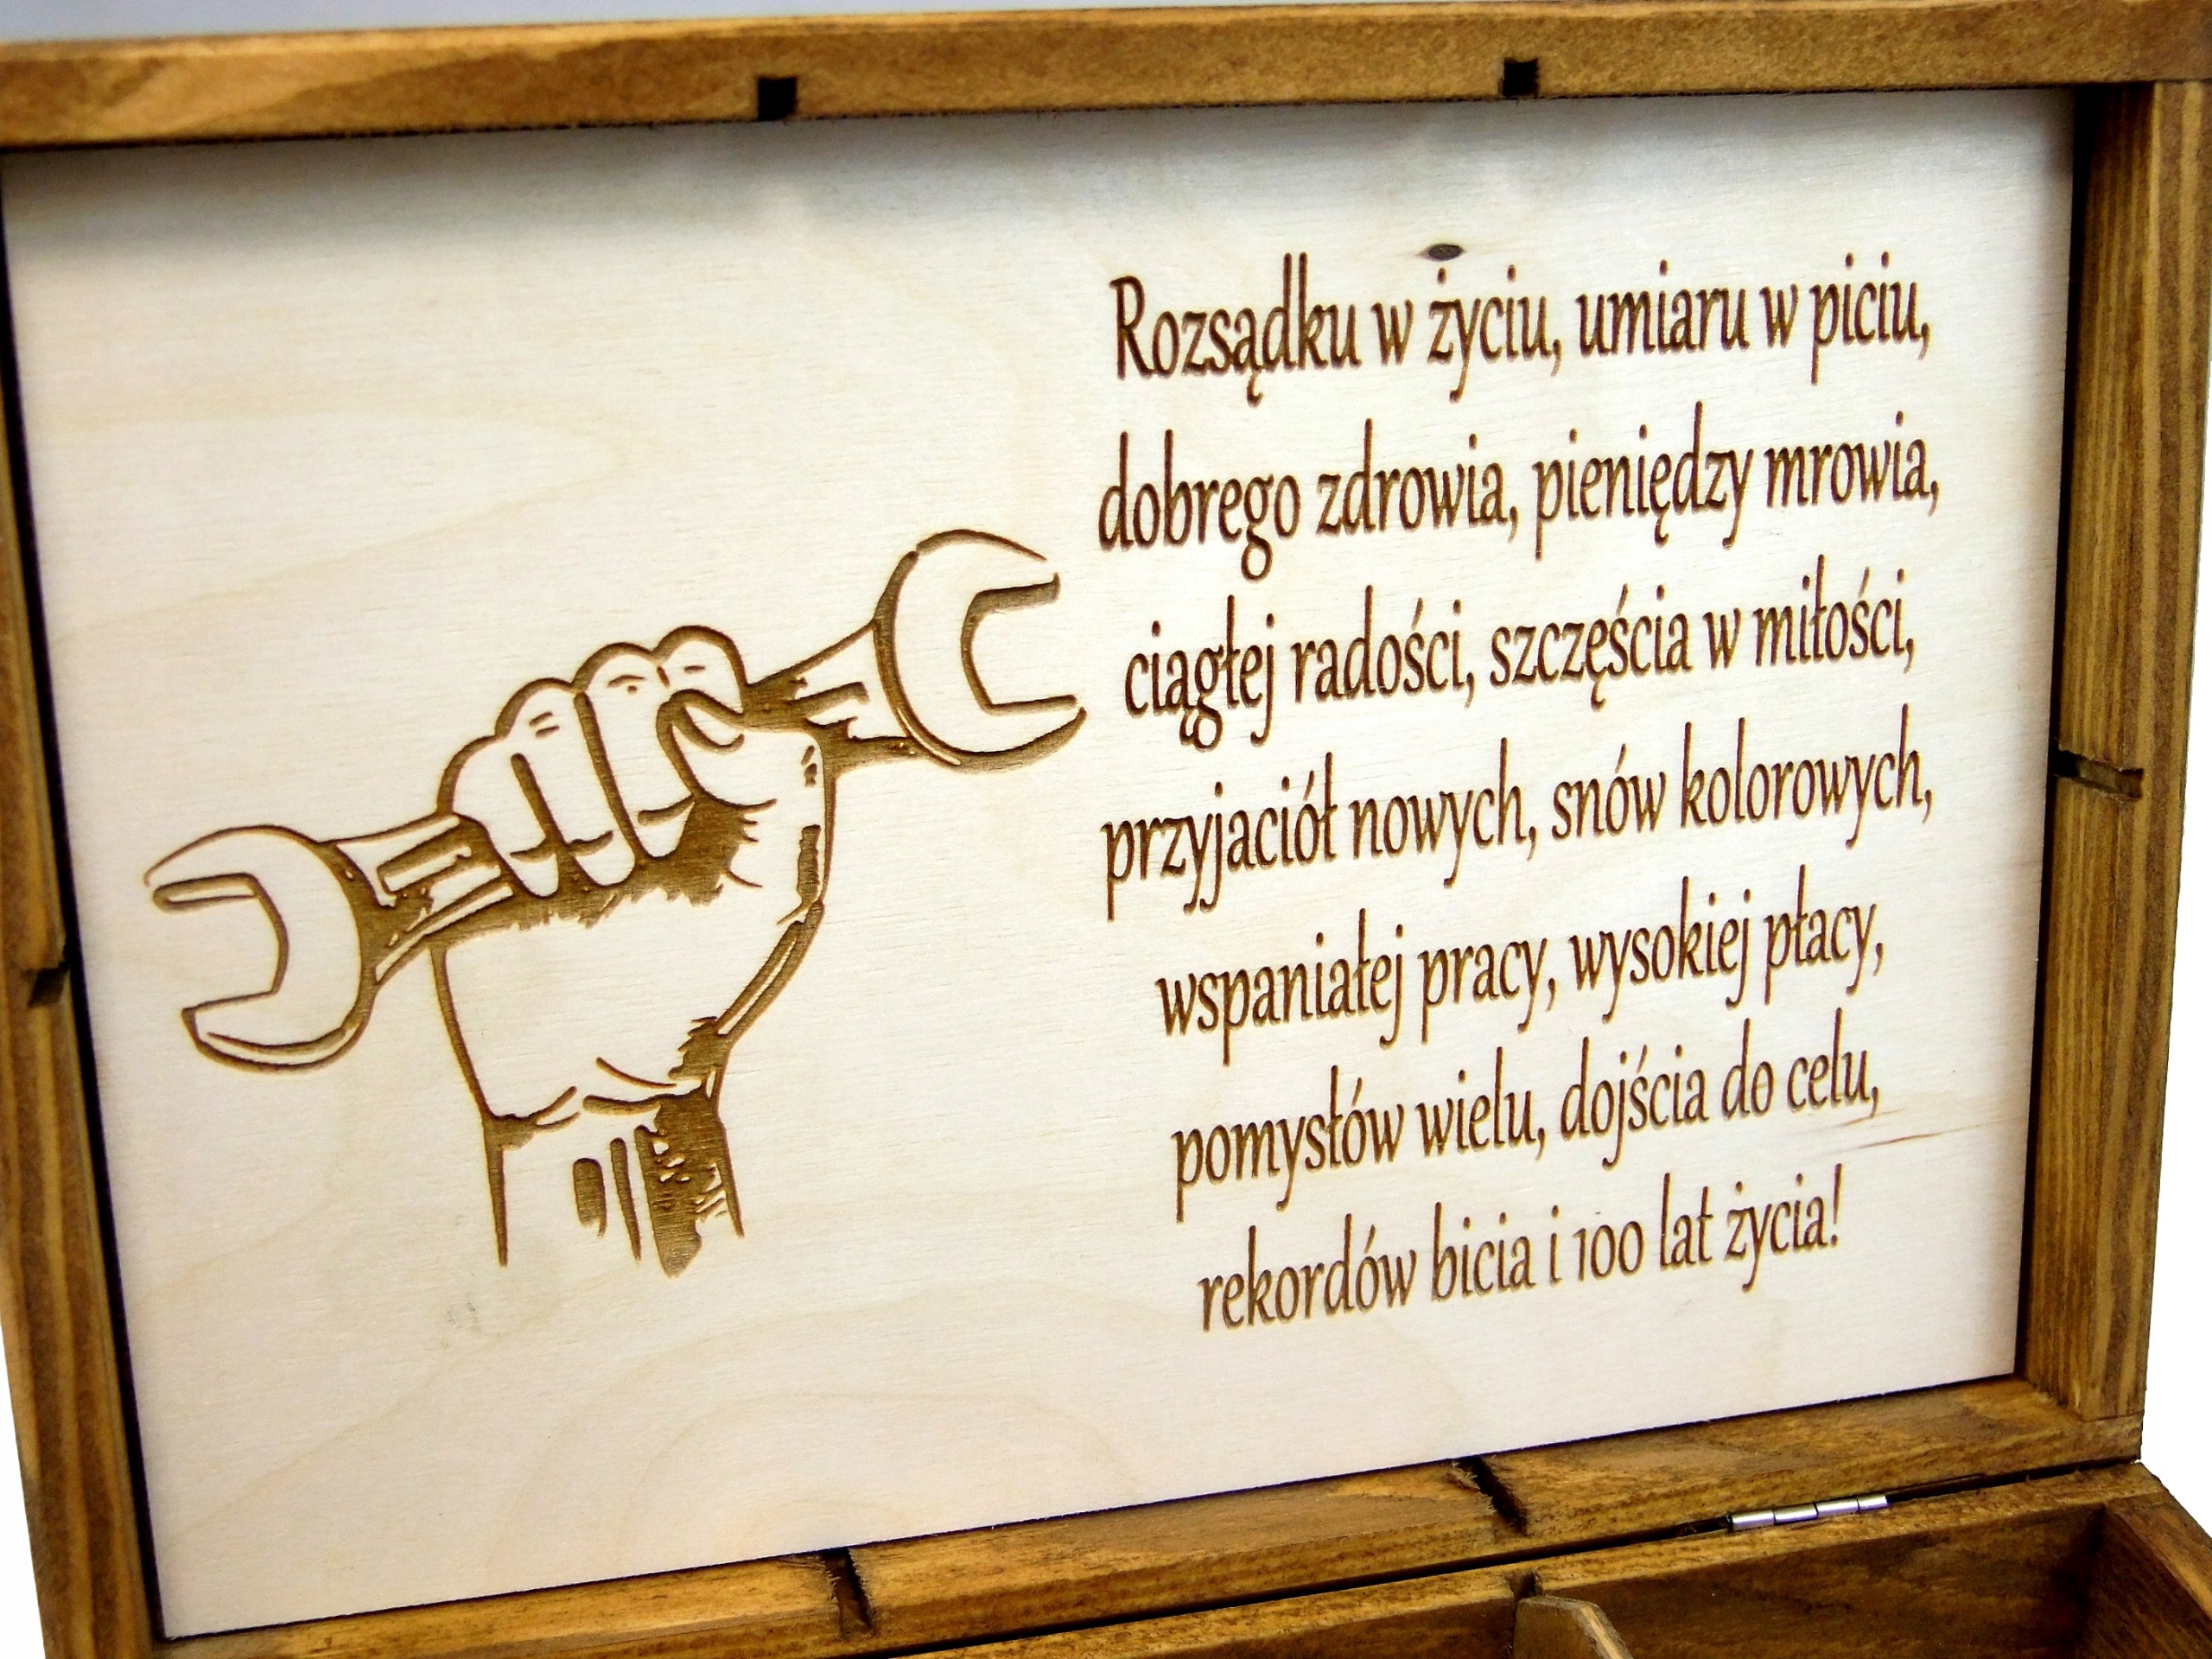 Rozsądku w życiu, umiaru w piciu,
dobrego zdrowia, pieniędzy mrowia,
ciągłej radości, szczęścia w miłości,
przyjaciół nowych, snów kolorowych,
wspaniałej pracy, wysokiej płacy,
pomysłów wielu, dojścia do celu,
rekordów bicia i 100 lat życia!